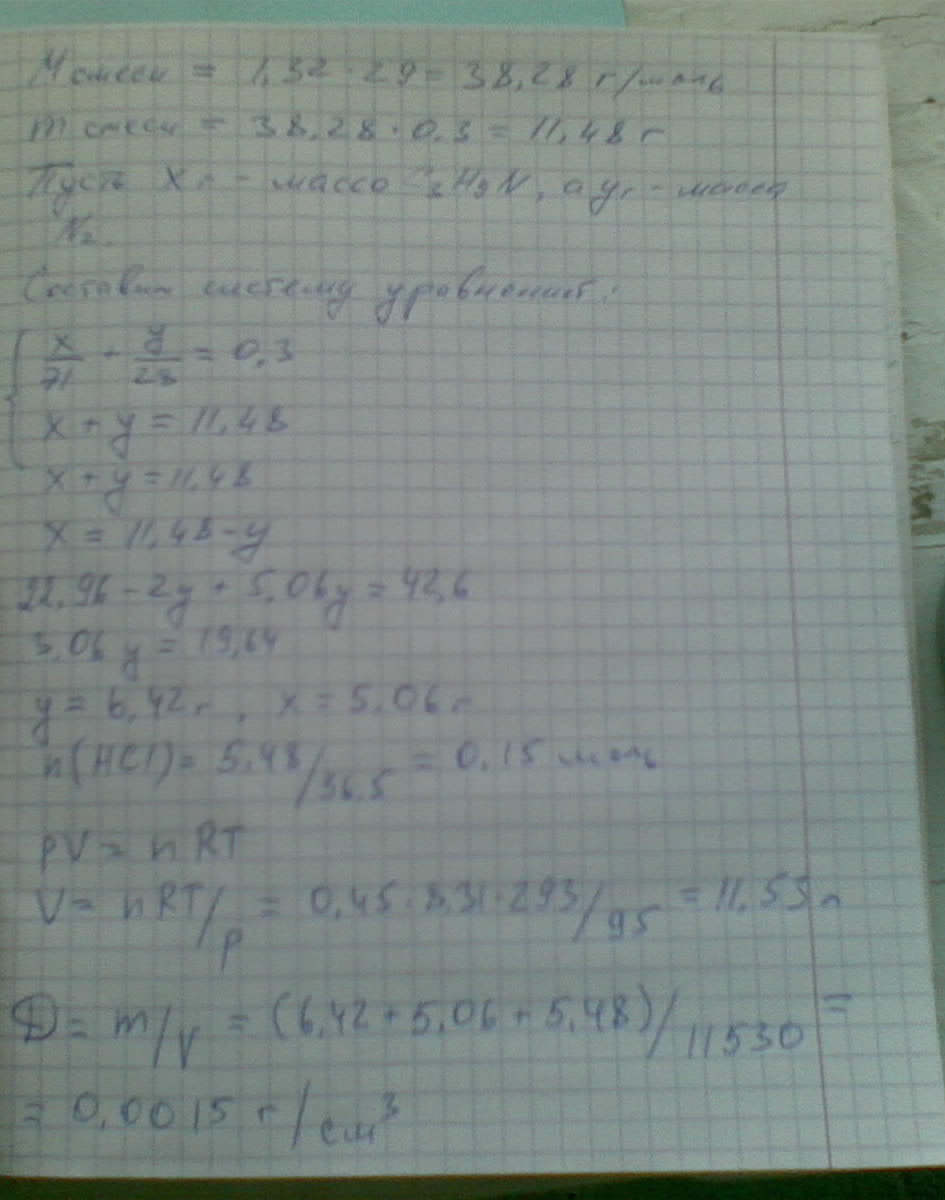 M смеси = 1,32 · 29 = 38,28 г/моль
m смеси = 38,28 · 0,3 = 11,48 г
Пусть x г - массо C3H9N, а y г - масса
N2.
Составим систему уравнений:
x/71 + y/28 = 0,3
x + y = 11,48
x + y = 11,48
x = 11,48 - y
22,96 - 2y + 5,06y = 42,6
3,06 y = 19,64
y = 6,42 г, x = 5,06 г
n(HCl) = 5,48/36,5 = 0,15 моль
pV = nRT
V = nRT/p = 0,45 · 8,31 · 293/95 = 11,53 л
D = m/V = (6,42 + 5,06 + 5,48)/11530 =
= 0,0015 г/см³